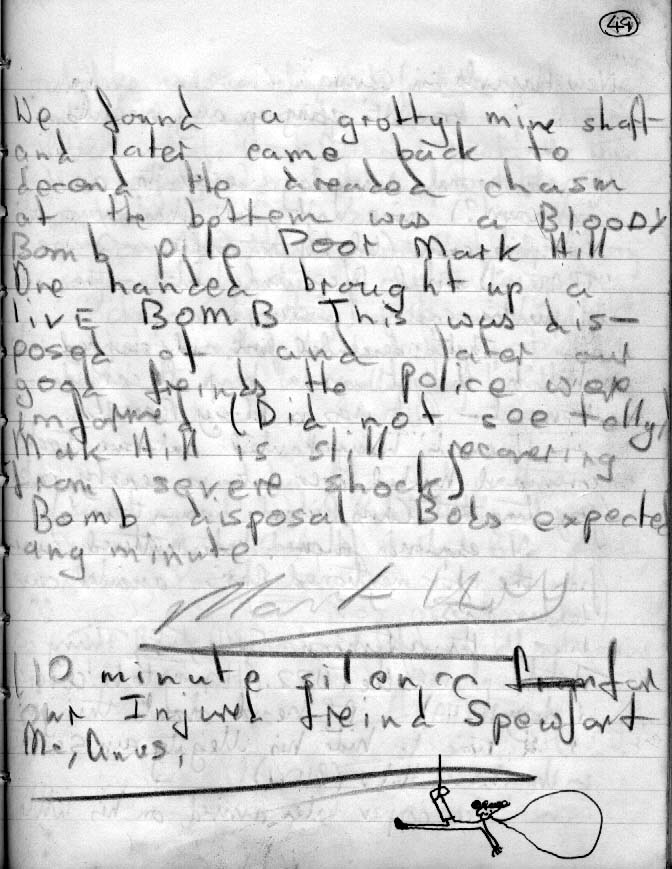 49
We found a grotty mine shaft
and later came back to
decend the dreaded chasm
at the bottom was a BlooDY
Bomb pile Poor Mark Hill
One handed brought up a
live BOMB This was dis-
posed of and later our
good freinds the Police were
informed (Did not see telly)
Mark Hill is still recovering
from severe shock)
Bomb disposal Bods expected
any minute.
Mark
10 minute silence for
our Injured freind Spewfart
Mc, Anus,